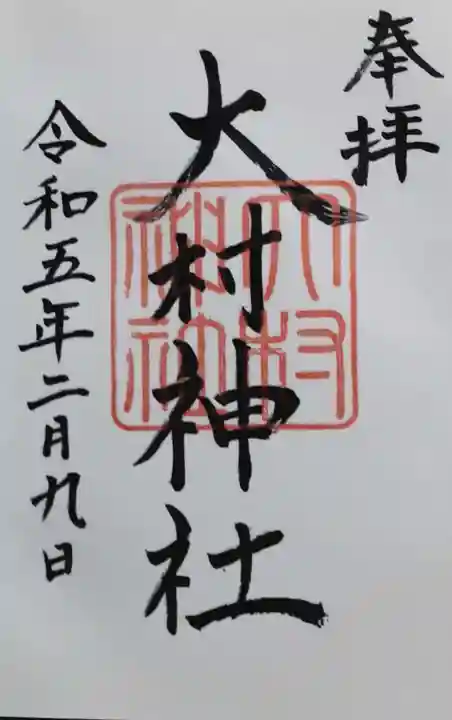 奉拝
大村神社
大村神社
令和五年二月九日